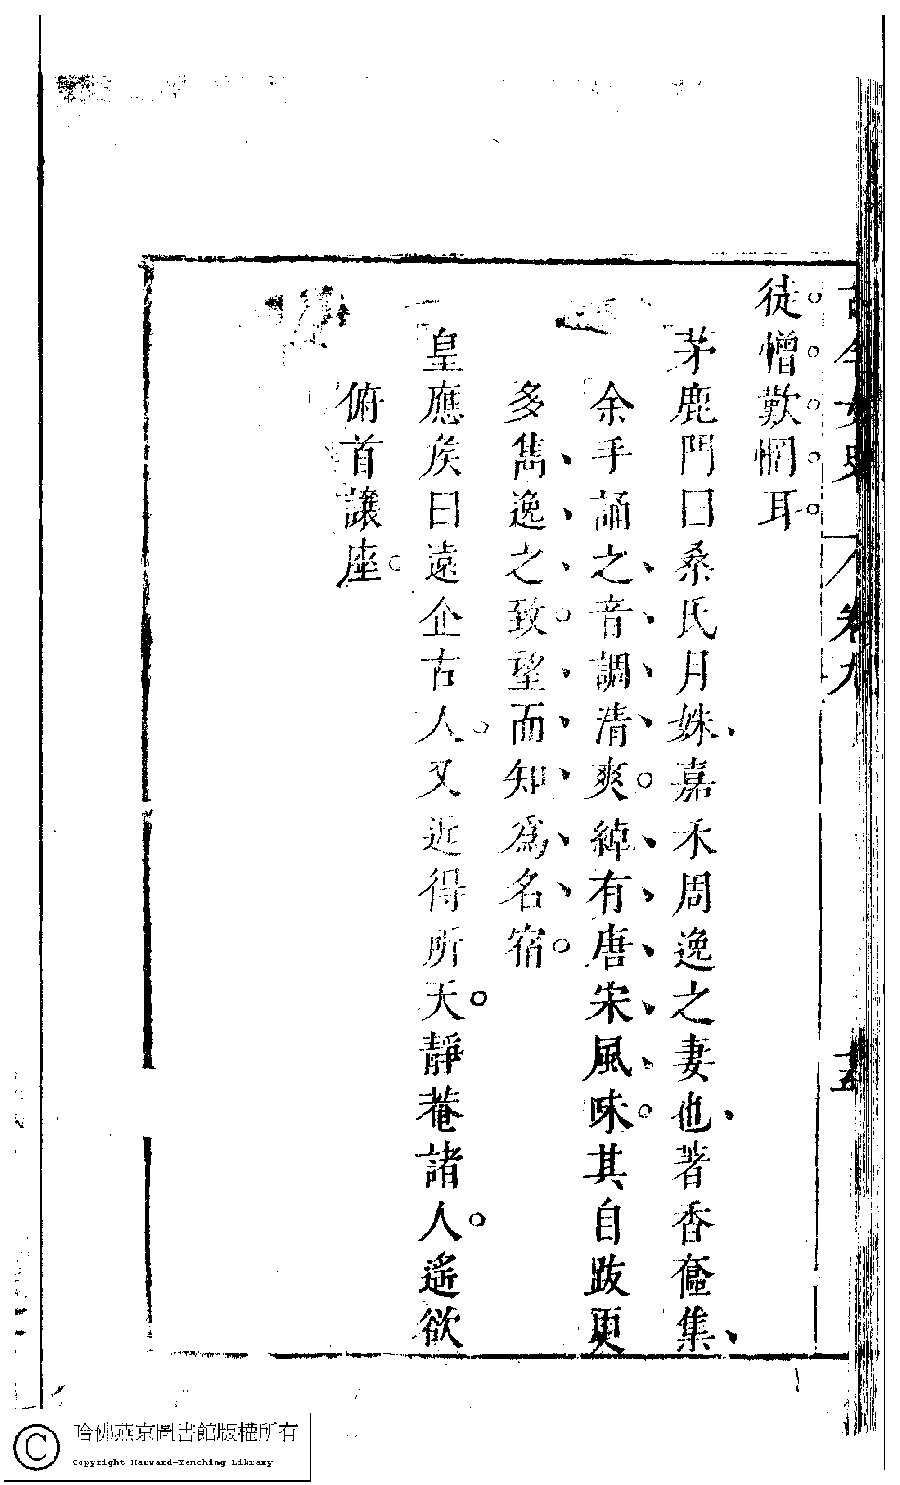 古今女史　卷九
徒憎歎惘耳
茅鹿門曰桑氏月姝嘉禾周逸之妻也著香奩集
余手誦之音調清爽綽有唐宋風味其自跋更
多雋逸之致望而知爲名宿
皇應矦曰遠企古人又近得所天靜菴諸人遙欲
俯首讓座
哈佛燕京圖書館版權所有
Copyright Harvard-Yenching Library